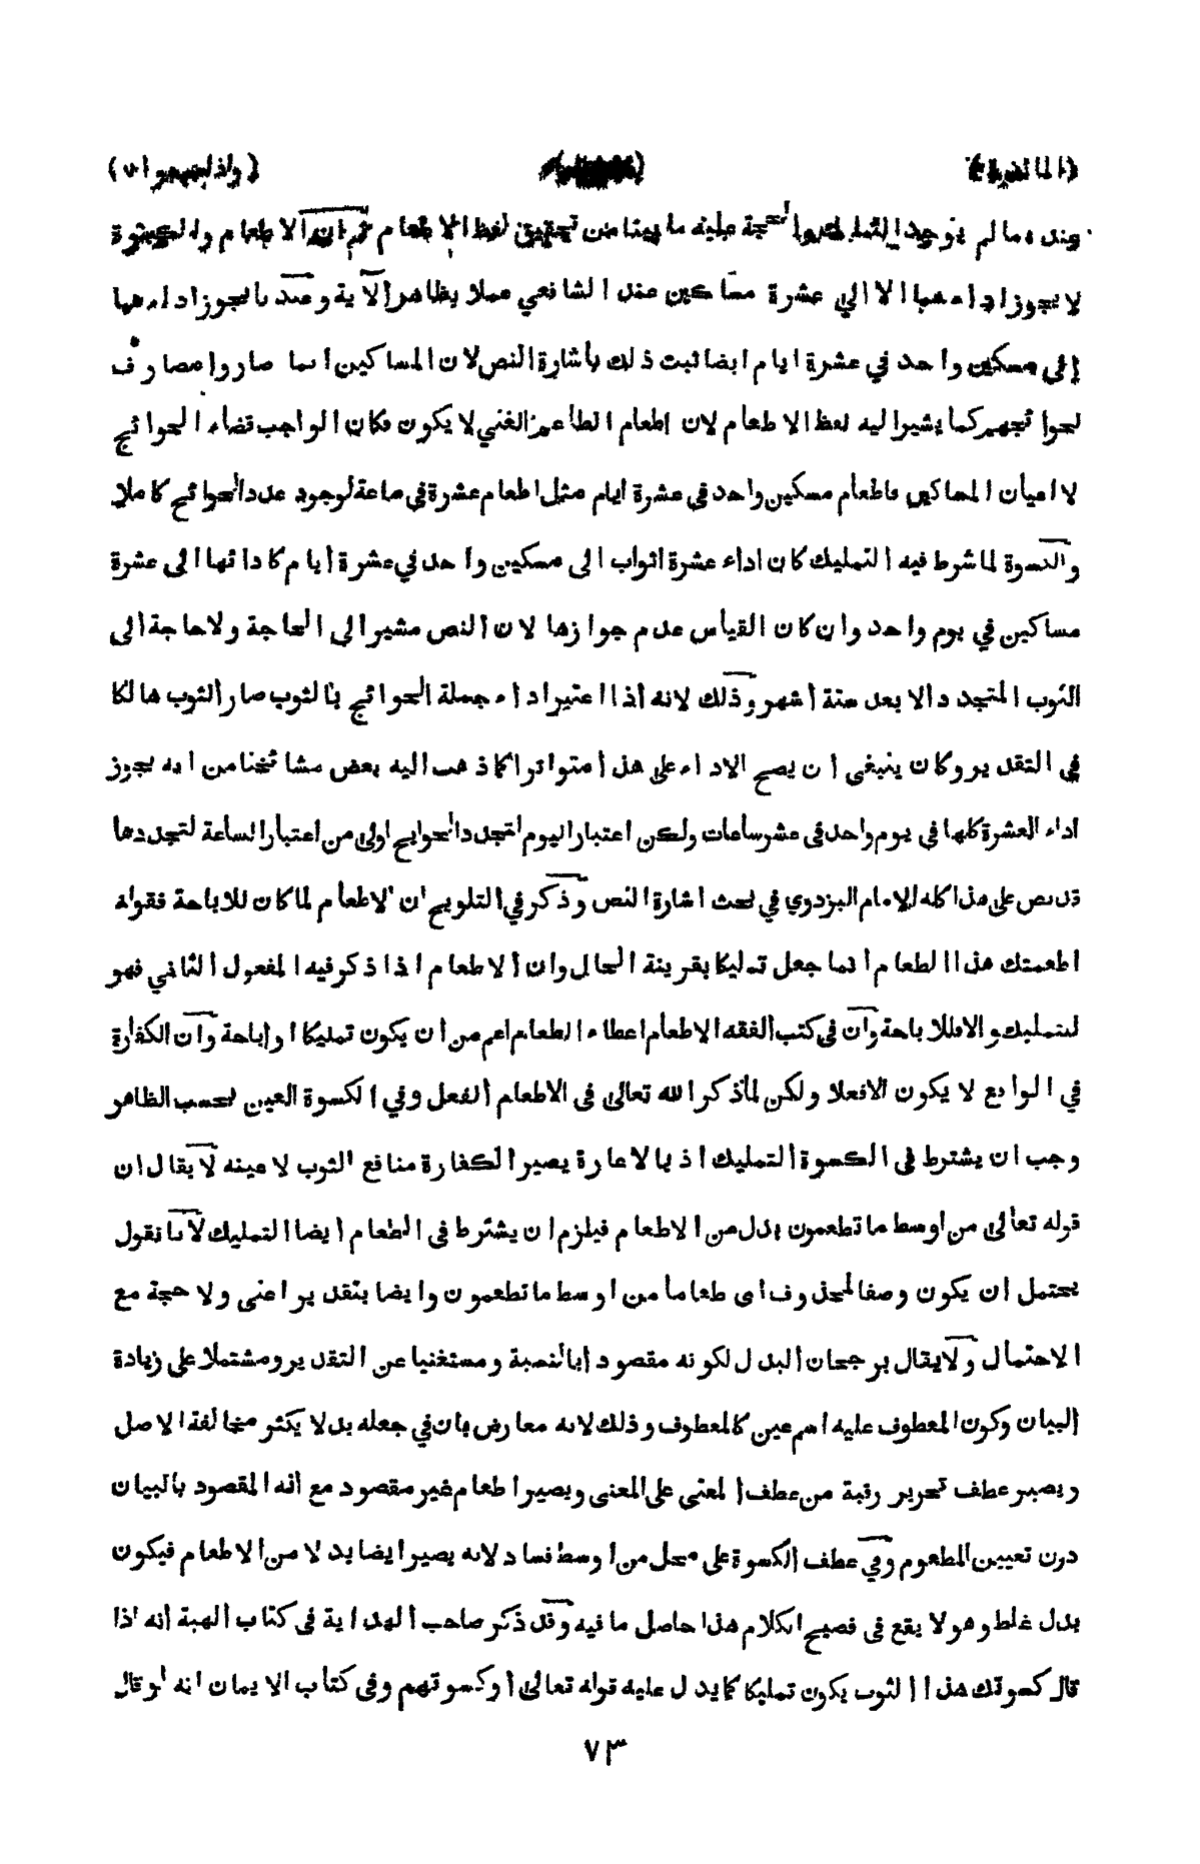 (المائدة) (واذا سمعوا ٧)
عنده مالم يوجد التمليك والحجة عليه ما بينا من تحقيق لفظ الاطعام ثم ان الاطعام والكسوة
لا يجوز اداءهما الا الى عشرة مساكين عند الشافعي عملا بظاهر الآية وعندنا يجوز اداءهما
إلى مسكين واحد في عشرة ايام ايضا ثبت ذلك باشارة النص لان المساكين انما صاروا مصارف
لحوائجهم كما يشير اليه لفظ الاطعام لان اطعام الطاعم الغني لا يكون فكان الواجب قضاء الحوائج
لا اعيان المساكين فاطعام مسكين واحد في عشرة ايام مثل اطعام عشرة في ساعة لوجود عدد الحوائج كاملا
والكسوة لما شرط فيه التمليك كان اداء عشرة اثواب الى مسكين واحد في عشرة أيام كادائها الى عشرة
مساكين في يوم واحد وان كان القياس عدم جوازها لان النص مشير الى الحاجة ولا حاجة الى
الثوب المتجدد الا بعد ستة أشهر وذلك لانه اذا اعتبر اداء جملة الحوائج بالثوب صار الثوب هالكا
في التقدير وكان ينبغي ان يصح الاداء على هذا متواترا كما ذهب اليه بعض مشائخنا من انه يجوز
اداء العشرة كلها في يوم واحد في عشر ساعات ولكن اعتبار اليوم لتجدد الحوايج اولى من اعتبار الساعة لتجددها
قد نص على هذا كله الامام البزدوي في بحث اشارة النص وذكر في التلويح ان الاطعام لما كان للاباحة فقوله
اطعمتك هذا الطعام انما جعل تمليكا بقرينة الحال وان الاطعام اذا ذكر فيه المفعول الثاني فهو
للتمليك والا فللاباحة وان في كتب الفقه الاطعام اعطاء الطعام اعم من ان يكون تمليكا او إباحة وان الكفارة
في الواقع لا يكون الا فعلا ولكن لما ذكر الله تعالى في الاطعام الفعل وفي الكسوة العين بحسب الظاهر
وجب ان يشترط في الكسوة التمليك اذ بالاعارة يصير الكفارة منافع الثوب لا عينه لا يقال ان
قوله تعالى من اوسط ما تطعمون بدل من الاطعام فيلزم ان يشترط في الطعام ايضا التمليك لانا نقول
يحتمل ان يكون وصفا لمحذوف اى طعاما من اوسط ما تطعمون وايضا بتقدير اعنى ولا حجة مع
الاحتمال ولا يقال برجحان البدل لكونه مقصودا بالنسبة ومستغنيا عن التقدير ومشتملا على زيادة
البيان وكون المعطوف عليه اسم عين كالمعطوف وذلك لانه معارض بان في جعله بدلا يكثر مخالفة الاصل
ويصير عطف تحرير رقبة من عطف المعنى على المعنى ويصير اطعام غير مقصود مع انه المقصود بالبيان
دون تعيين المطعوم وفي عطف الكسوة على محل من اوسط فساد لانه يصير ايضا بدلا من الاطعام فيكون
بدل غلط وهو لا يقع في فصيح الكلام هذا حاصل ما فيه وقد ذكر صاحب الهداية في كتاب الهبة انه اذا
قال كسوتك هذا الثوب يكون تمليكا كما يدل عليه قوله تعالى أو كسوتهم وفى كتاب الايمان انه لو قال
٧٣